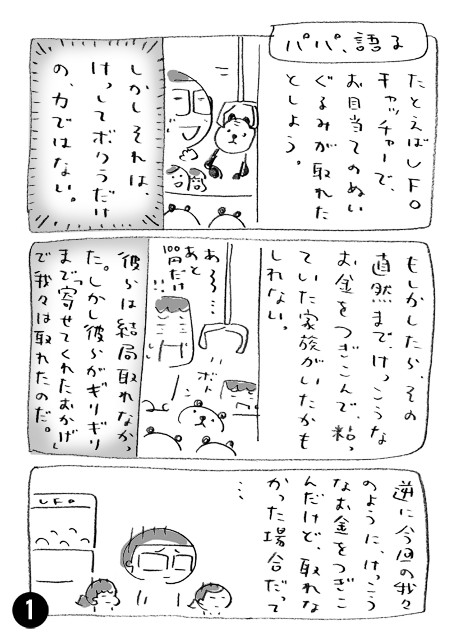 パパ、語る
たとえばUFO
キャッチャーで、
お目当てのぬい
ぐるみが取れた
としよう。
しかしそれは、
けっしてボクらだけ
の、力ではない。
もしかしたら、その
直前までけっこうな
お金をつぎこんで、粘っ
ていた家族がいたかも
しれない。
あ〜…
あと
100円だけ
!!
ボト
彼らは結局取れなかっ
た。しかし彼らがギリギリ
まで「寄せてくれたおかげ」
で我々は取れたのだ。
逆に今回の我々
のように、けっこう
なお金をつぎこ
んだけど、取れな
かった場合だって
…
UFO
1